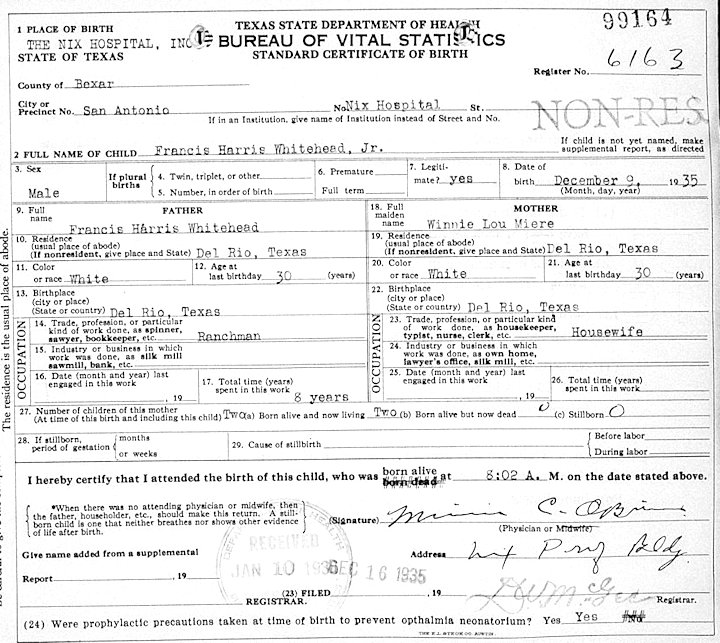 99164
TEXAS STATE DEPARTMENT OF HEALTH
BUREAU OF VITAL STATISTICS
STANDARD CERTIFICATE OF BIRTH
1 PLACE OF BIRTH
THE NIX HOSPITAL, INC
STATE OF TEXAS
Register No. 6163
County of Bexar
City or
Precinct No. San Antonio No. Nix Hospital St.
If in an Institution, give name of Institution instead of Street and No.
NON-RES
2 FULL NAME OF CHILD Francis Harris Whitehead, Jr.
If child is not yet named, make
supplemental report, as directed
3. Sex
Male
If plural births
4. Twin, triplet, or other
5. Number, in order of birth
6. Premature
Full term
7. Legiti-
mate? yes
8. Date of
birth December 9, 1935
(Month, day, year)
FATHER
9. Full
name Francis Harris Whitehead
10. Residence
(usual place of abode)
(If nonresident, give place and State) Del Rio, Texas
11. Color
or race White
12. Age at
last birthday 30 (years)
13. Birthplace
(city or place)
(State or country) Del Rio, Texas
OCCUPATION
14. Trade, profession, or particular
kind of work done, as spinner,
sawyer, bookkeeper, etc. Ranchman
15. Industry or business in which
work was done, as silk mill
sawmill, bank, etc.
16. Date (month and year) last
engaged in this work
, 19
17. Total time (years)
spent in this work
8 years
MOTHER
18. Full
maiden
name Winnie Lou Miere
19. Residence
(usual place of abode)
(If nonresident, give place and State) Del Rio, Texas
20. Color
or race White
21. Age at
last birthday 30 (years)
22. Birthplace
(city or place)
(State or country) Del Rio, Texas
OCCUPATION
23. Trade, profession, or particular kind
of work done, as housekeeper,
typist, nurse, clerk, etc. Housewife
24. Industry or business in which
work was done, as own home,
lawyer's office, silk mill, etc.
25. Date (month and year) last
engaged in this work
, 19
26. Total time (years)
spent in this work
27. Number of children of this mother
(At time of this birth and including this child) Two (a) Born alive and now living Two (b) Born alive but now dead 0 (c) Stillborn 0
28. If stillborn,
period of gestation
months
or weeks
29. Cause of stillbirth
Before labor
During labor
I hereby certify that I attended the birth of this child, who was born alive at 8:02 A. M. on the date stated above.
born dead
*When there was no attending physician or midwife, then
the father, householder, etc., should make this return. A still-
born child is one that neither breathes nor shows other evidence
of life after birth.
(Signature) C. O'Brien
(Physician or Midwife)
Give name added from a supplemental
Report , 19
REGISTRAR.
Address Nix Prof Bldg.
RECEIVED
JAN 10 1936
DEC 16 1935
(23) FILED , 19
Registrar.
(24) Were prophylactic precautions taken at time of birth to prevent opthalmia neonatorium? Yes Yes No
The residence is the usual place of abode.